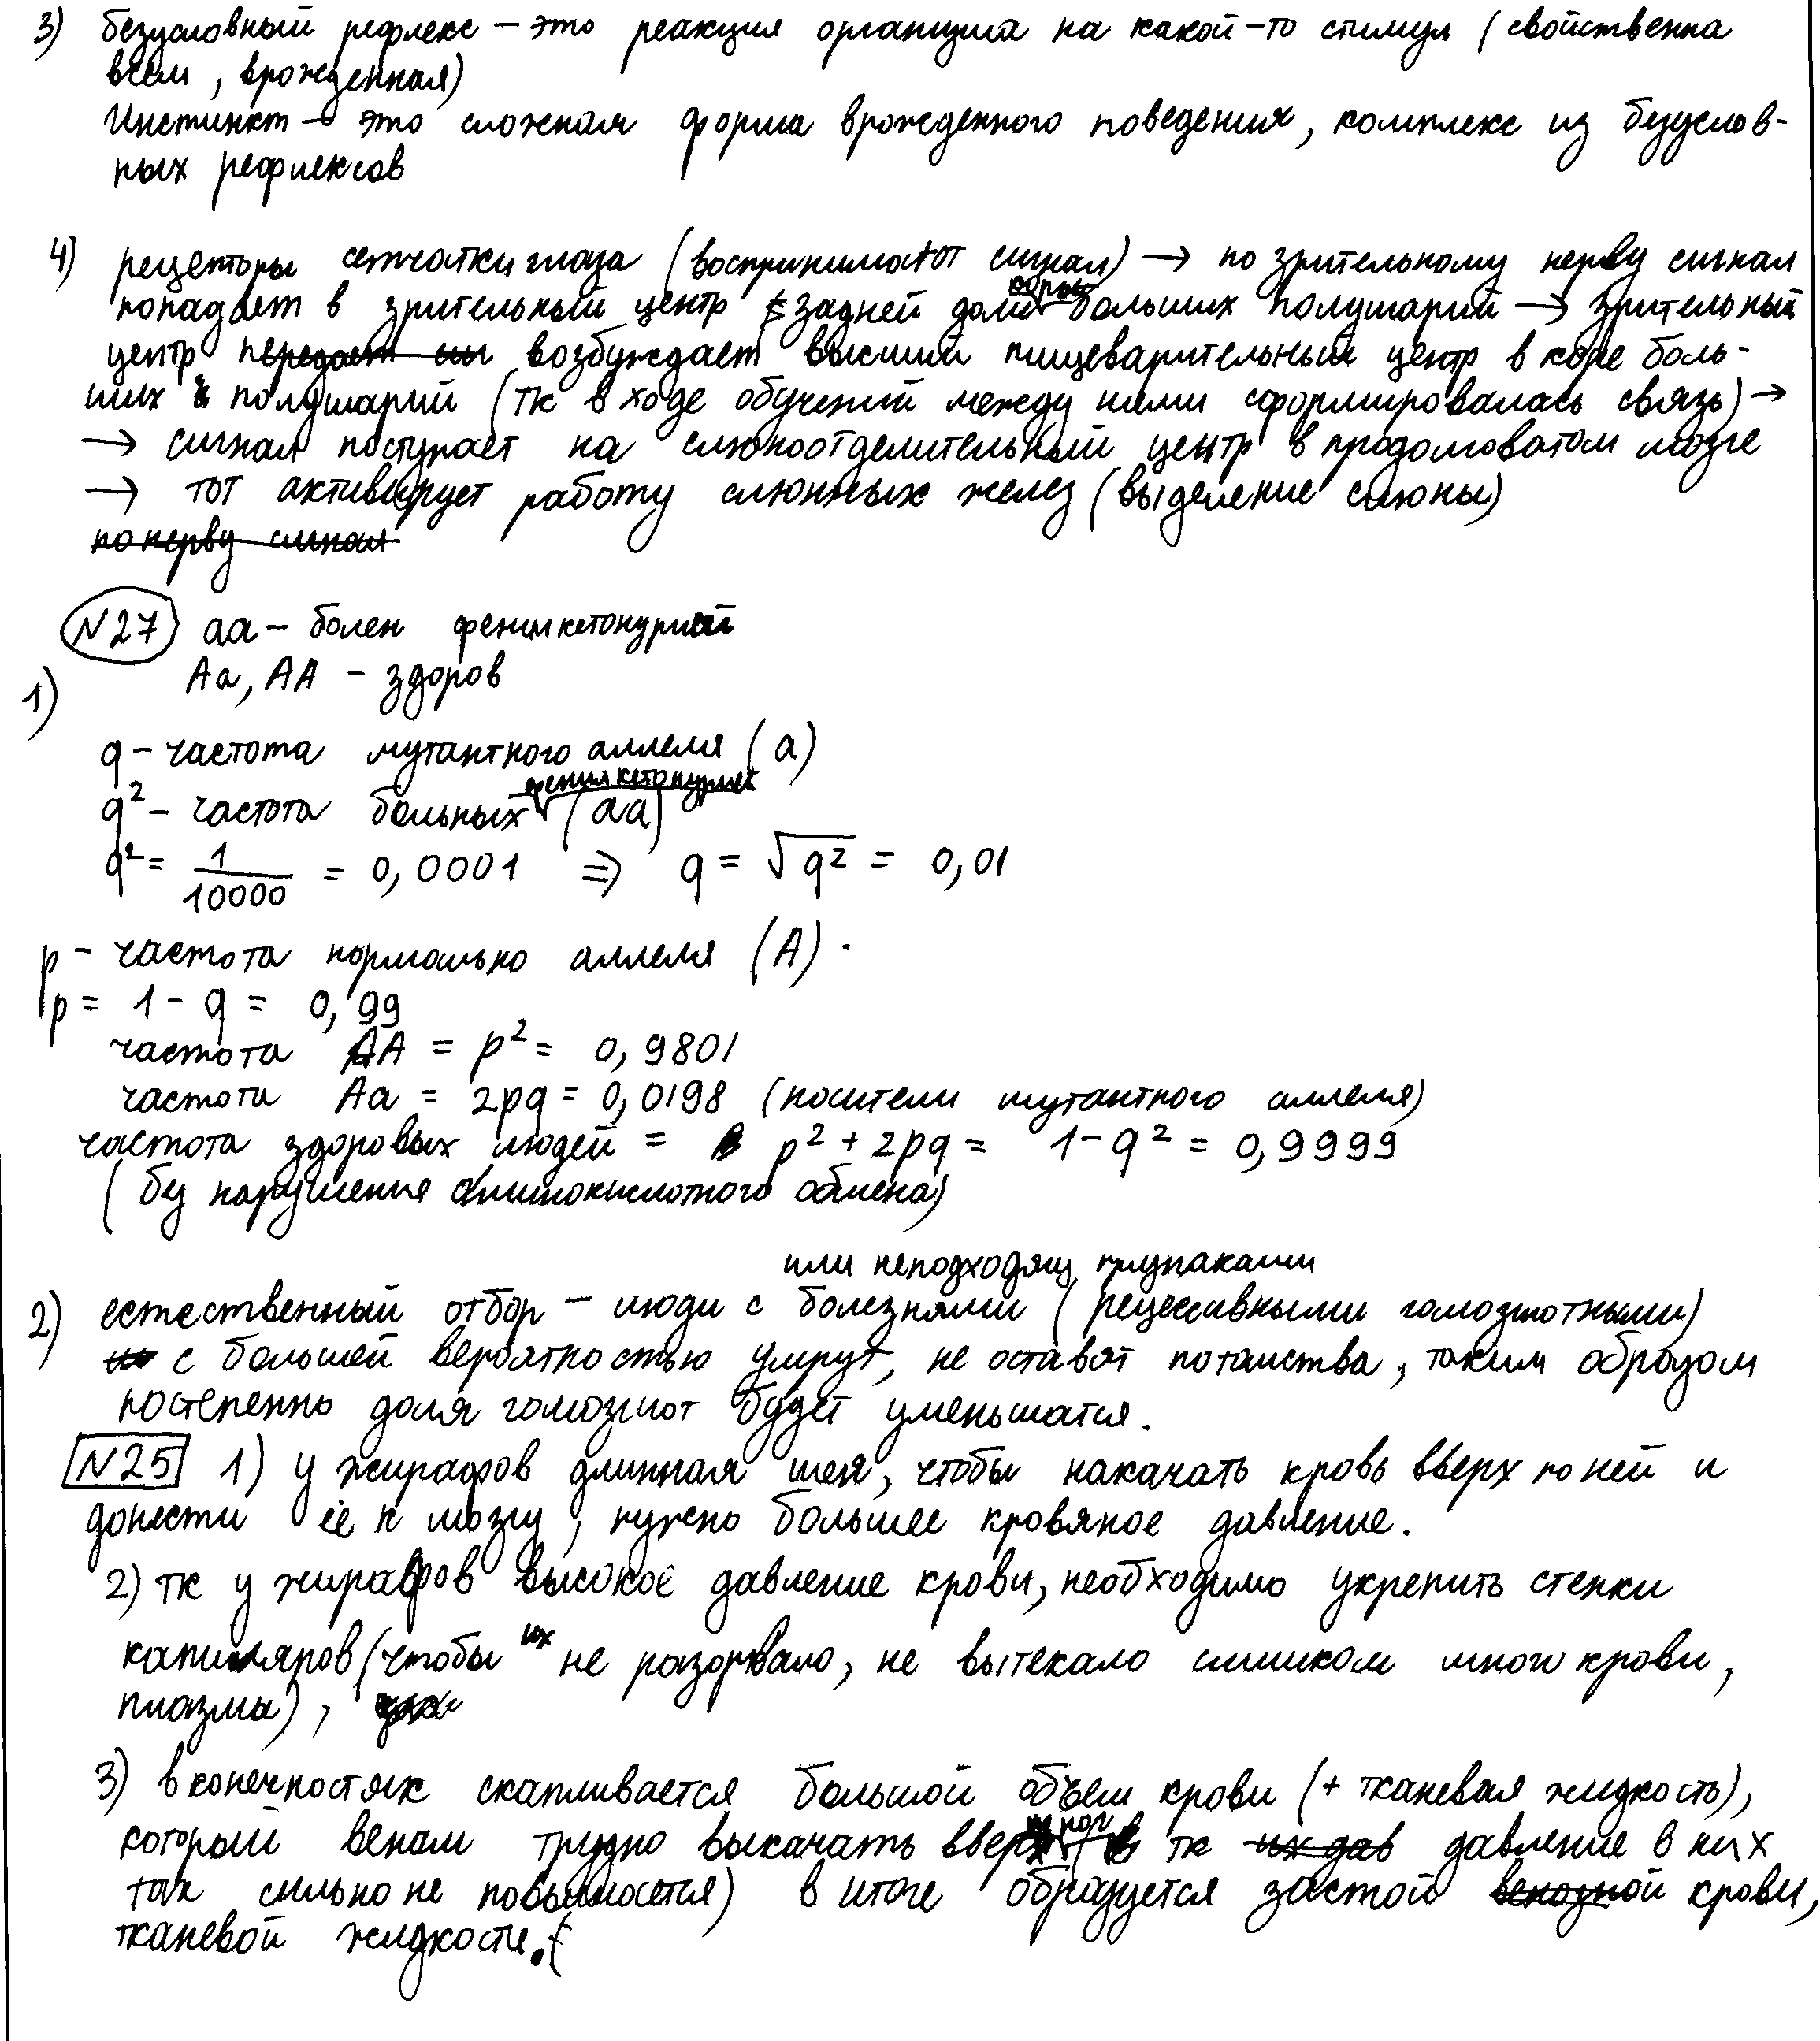 3) безусловный рефлекс – это реакция организма на какой-то стимул (свойственна
всем, врожденная)
Инстинкт – это сложная форма врожденного поведения, комплекс из безуслов-
ных рефлексов
4) рецепторы сетчатки глаза (воспринимают сигнал) → по зрительному нерву сигнал
коры
попадает в зрительный центр задней доли больших полушарий → зрительный
центр передает возбуждает высший пищеварительный центр в коре боль-
ших полушарий (тк в ходе обучений между ними сформировалась связь) →
→ сигнал поступает на слюноотделительный центр в продолговатом мозге
→ тот активирует работу слюнных желез (выделение слюны)
по нерву сигнал
N27 аа – болен фенилкетонурией
Аа, АА – здоров
1)
q – частота мутантного аллеля (а)
фенилкетонурией
q² – частота больных (аа)
q² = 1/10000 = 0,0001 ⇒ q = √q² = 0,01
p – частота нормально аллеля (А).
p = 1 – q = 0,99
частота АА = p² = 0,9801
частота Аа = 2pq = 0,0198 (носители мутантного аллеля)
частота здоровых людей = p² + 2pq = 1 – q² = 0,9999
(без нарушения аминокислотного обмена)
или неподходящ. признаками
2) естественный отбор – люди с болезнями (рецессивными гомозиготными)
с большей вероятностью умрут, не оставят потомства, таким образом
постепенно доля гомозигот будет уменьшатся.
N25 1) у жирафов длинная шея, чтобы накачать кровь вверх по ней и
донести её к мозгу, нужно большее кровяное давление.
2) тк у жирафов высокое давление крови, необходимо укрепить стенки
капилляров (чтобы их не разорвало, не вытекало слишком много крови,
плазмы),
3) в конечностях скапливается большой объем крови (+ тканевая жидкость),
который венам трудно выкачать вверх тк их дав давление в них
так сильно не повышается) в итоге образуется застой венозной крови,
тканевой жидкости.